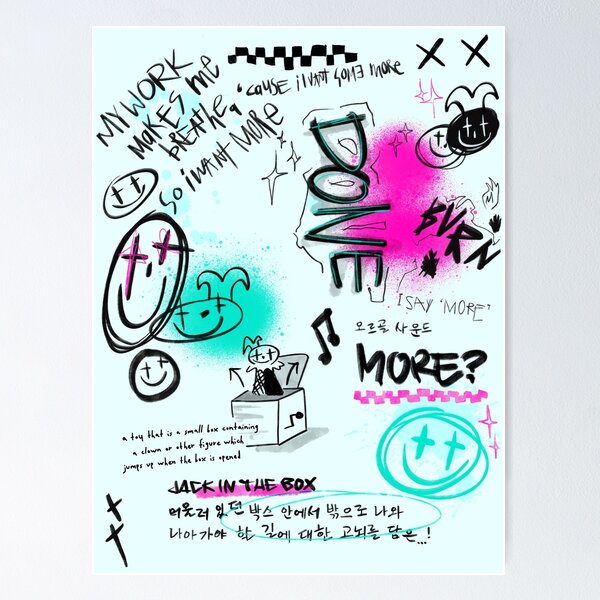 MY WORK
MAKES me
BREATHe,
'cause i WANT SOME MORE
SO i WANT MORE
DONE
MY
BURN
I SAY 'MORE'
오르골 사운드
MORE?
a toy that is a small box containing
a clown or other figure which
jumps up when the box is opened
JACK IN THE BOX
머물러 있던 박스 안에서 밖으로 나와
나아가야 할 길에 대한 고뇌를 담은...!